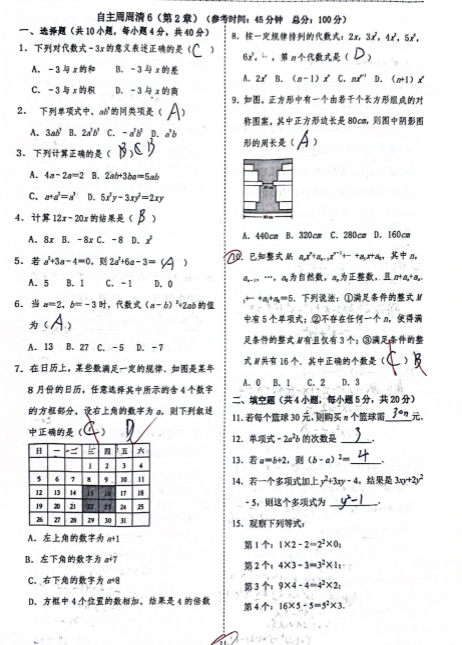 自主周周清6（第2章）（参考时间：45分钟 总分：100分）
一、选择题（共10小题，每小题4分，共40分）
1. 下列对代数式-3x的意义表述正确的是（C）
A. -3与x的和 B. -3与x的差
C. -3与x的积 D. -3与x的商
2. 下列单项式中，ab³的同类项是（A）
A. 3ab³ B. 2a²b³ C. -a²b² D. a³b
3. 下列计算正确的是（
A. 4a-2a=2 B. 2ab+3ba=5ab
C. a+a²=a³ D. 5x²y-3xy²=2xy
4. 计算12x-20x的结果是（B）
A. 8x B. -8x C. -8 D. x²
5. 若a²+3a-4=0，则2a²+6a-3=（A）
A. 5 B. 1 C. -1 D. 0
6. 当a=2，b=-3时，代数式(a-b)²+2ab的值
为（A）
A. 13 B. 27 C. -5 D. -7
7. 在日历上，某些数满足一定的规律，如图是某年
8月份的日历，任意选择其中所示的含4个数字
的方框部分，设右上角的数字为a，则下列叙述
中正确的是（C）D
日 一 二 三 四 五 六
1 2 3 4
5 6 7 8 9 10 11
12 13 14 15 16 17 18
19 20 21 22 23 24 25
26 27 28 29 30 31
A. 左上角的数字为a+1
B. 左下角的数字为a+7
C. 右下角的数字为a+8
D. 方框中4个位置的数相加，结果是4的倍数
8. 按一定规律排列的代数式：2x，3x²，4x³，5x⁴，
6x⁵，…，第n个代数式是（D）
A. 2xⁿ B. (n-1)xⁿ C. nxⁿ⁺¹ D. (n+1)xⁿ
9. 如图，正方形中有一个由若干个长方形组成的对
称图案，其中正方形边长是80cm，则图中阴影图
形的周长是（A）
A. 440cm B. 320cm C. 280cm D. 160cm
10. 已知整式M：aₙxⁿ+aₙ₋₁xⁿ⁻¹+…+a₁x+a₀，其中n，
aₙ₋₁，…，a₀为自然数，aₙ为正整数，且n+aₙ+aₙ₋
₁+…+a₁+a₀=5．下列说法：①满足条件的整式M
中有5个单项式；②不存在任何一个n，使得满
足条件的整式M有且仅有3个；③满足条件的整
式M共有16个．其中正确的个数是（C）B
A. 0 B. 1 C. 2 D. 3
二、填空题（共4小题，每小题5分，共20分）
11. 若每个篮球30元，则购买n个篮球需 30n 元．
12. 单项式-2a²b的次数是 3 ．
13. 若a=b+2，则(b-a)²= 4 ．
14. 若一个多项式加上y²+3xy-4，结果是3xy+2y²
-5，则这个多项式为 y²-1 ．
15. 观察下列等式：
第1个：1×2-2=2²×0；
第2个：4×3-3=3²×1；
第3个：9×4-4=4²×2；
第4个：16×5-5=5²×3．